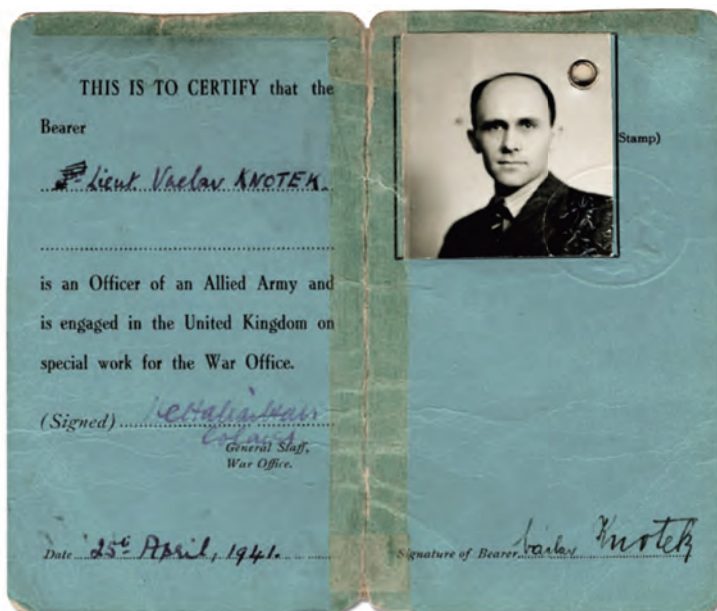 THIS IS TO CERTIFY that the
Bearer
Lieut Vaclav KNOTEK.
is an Officer of an Allied Army and
is engaged in the United Kingdom on
special work for the War Office.
(Signed)
Colonel
General Staff,
War Office.
Date 25th April, 1941.
Stamp)
Signature of Bearer Václav Knotek